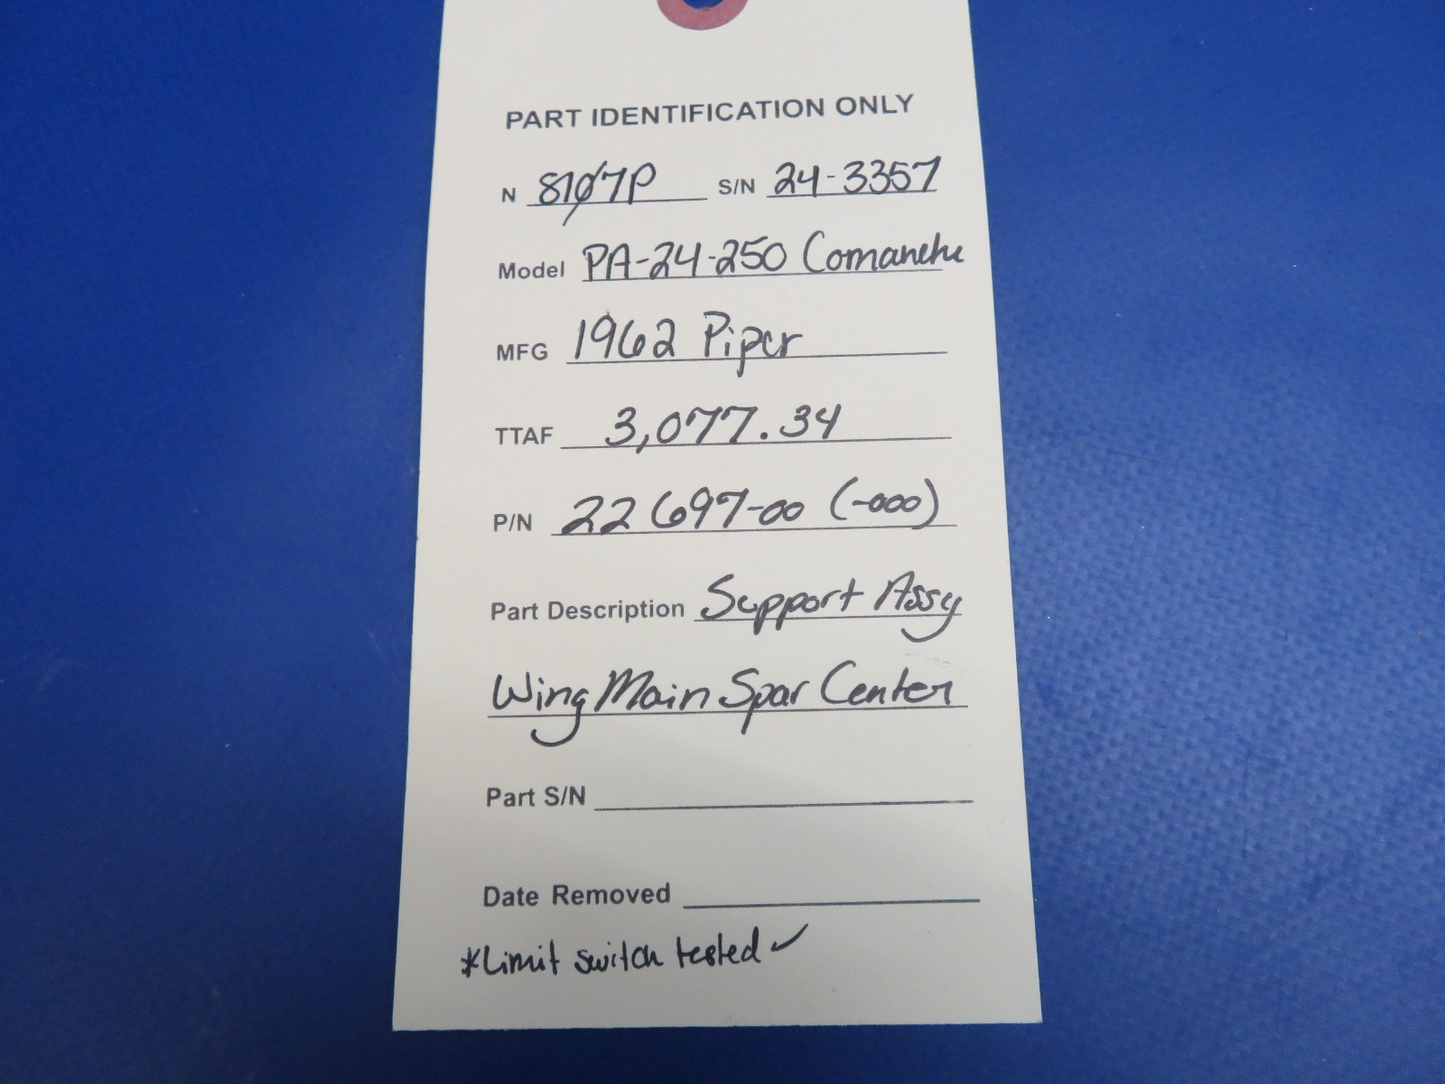 PART IDENTIFICATION ONLY
N 8107P S/N 24-3357
Model PA-24-250 Comanche
MFG 1962 Piper
TTAF 3,077.34
P/N 22697-00 (-000)
Part Description Support Assy
Wing Main Spar Center
Part S/N
Date Removed
*Limit switch tested ✓